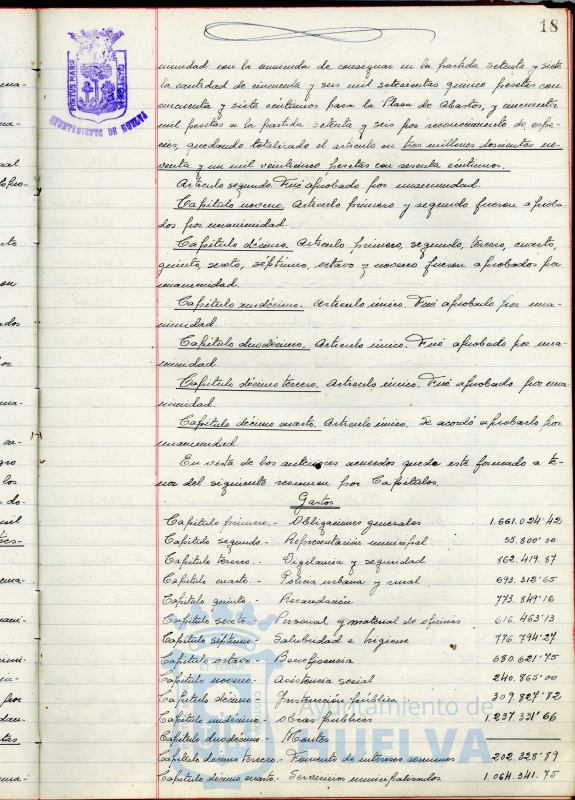 18
PORTUS MARIS
AYUNTAMIENTO DE HUELVA
nimidad con la enmienda de consignar en la partida setenta y siete
la cantidad de cincuenta y seis mil setecientas quince pesetas con
cincuenta y siete céntimos para la Plaza de Abastos, y cincuenta
mil pesetas a la partida setenta y seis por reconocimiento de espe-
cies, quedando totalizado el artículo en tres millones doscientas no-
venta y un mil veinticinco pesetas con sesenta céntimos.
Artículo segundo. Fué aprobado por unanimidad.
Capítulo noveno. Artículo primero y segundo fueron aproba-
dos por unanimidad.
Capítulo décimo. Artículo primero, segundo, tercero, cuarto,
quinto, sexto, séptimo, octavo y noveno fueron aprobados por
unanimidad.
Capítulo undécimo. Artículo único. Fué aprobado por una-
nimidad.
Capítulo duodécimo. Artículo único. Fué aprobado por una-
nimidad.
Capítulo décimo tercero. Artículo único. Fué aprobado por una-
nimidad.
Capítulo décimo cuarto. Artículo único. Se acordó aprobarlo por
unanimidad.
En vista de los anteriores acuerdos queda este formado a te-
nor del siguiente resumen por Capítulos.
Gastos
Capítulo primero.- Obligaciones generales 1.661.024'42
Capítulo segundo.- Representación municipal 55.800'00
Capítulo tercero.- Vigilancia y seguridad 862.419.87
Capítulo cuarto.- Policía urbana y rural 693.312'65
Capítulo quinto.- Recaudación 773.849'16
Capítulo sexto.- Personal y material de oficinas 616.463'13
Capítulo séptimo.- Salubridad e higiene 776.794'27
Capítulo octavo.- Beneficencia 680.621'75
Capítulo noveno.- Asistencia social 240.865'00
Capítulo décimo.- Instrucción pública 309.827'82
Capítulo undécimo.- Obras públicas 1.237.321'66
Capítulo duodécimo.- Montes
Capítulo décimo tercero.- Fomento de intereses comunes 202.328'89
Capítulo décimo cuarto.- Servicios municipalizados 1.064.341.75
Ayuntamiento de
HUELVA